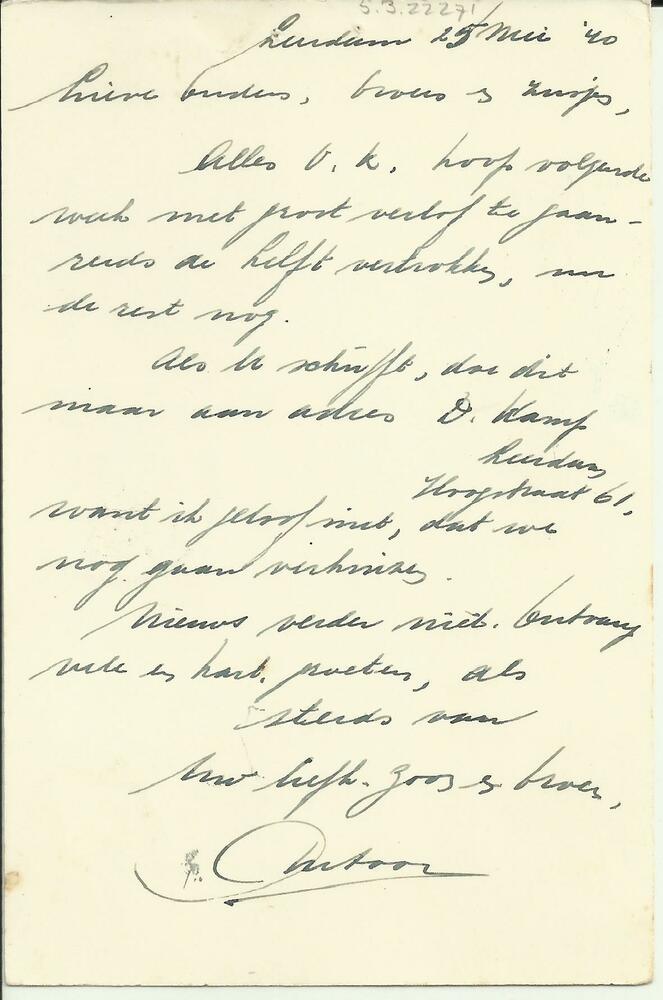 5.3.22271
Leerdam 25 Mei '40
Lieve ouders, broers en zusjes,
Alles O.k. hoop volgende
week met groot verlof te gaan -
reeds de helft vertrokken, nu
de rest nog.
Als U schrijft, doe dit
maar aan adres D. Kamp
Leerdam
Hoogstraat 61,
want ik geloof niet, dat we
nog gaan verhuizen.
Nieuws verder niet. Ontvang
vele en hart. groeten, als
steeds van
Uw liefh. zoon en broer,
Antoon